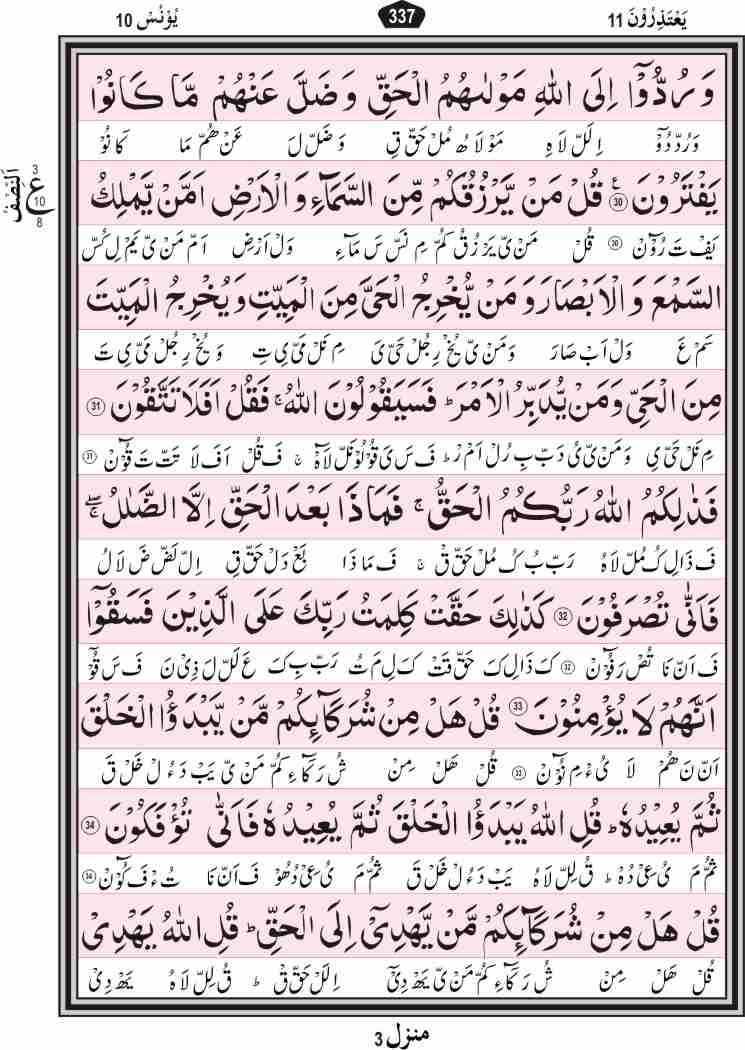 یَعْتَذِرُوْنَ 11 337 یُوْنُسْ 10
وَ رُدُّوْۤا اِلَى اللّٰهِ مَوْلٰىهُمُ الْحَقِّ وَ ضَلَّ عَنْهُمْ مَّا كَانُوْا
وَرُدّ دُوْۤ اِلَلّ لَاهِ مَوْ لَا هُ مُلْ حَقّ قِ وَ ضَلّ لَ عَنْ هُمّ مَا كَا نُوْ
یَفْتَرُوْنَ ۠ ﴿30﴾ قُلْ مَنْ یَّرْزُقُكُمْ مِّنَ السَّمَآءِ وَ الْاَرْضِ اَمَّنْ یَّمْلِكُ
یَفْ تَ رُوْٓنْ ﴿30﴾ قُلْ مَنْ یّ یَرْ زُ قُ كُمّ مِ نَسْ سَ مَآءِ وَلْ اَرْضِ اَمّ مَنْ یّ یَمْ لِ كُسْ
السَّمْعَ وَ الْاَبْصَارَ وَ مَنْ یُّخْرِجُ الْحَیَّ مِنَ الْمَیِّتِ وَ یُخْرِجُ الْمَیِّتَ
سَمْ عَ وَلْ اَبْ صَارَ وَمَنْ یّ یُخْ رِجُلْ حَیّ یَ مِ نَلْ مَیّ یِ تِ وَ یُخْ رِ جُلْ مَیّ یِ تَ
مِنَ الْحَیِّ وَ مَنْ یُّدَبِّرُ الْاَمْرَ ؕ فَسَیَقُوْلُوْنَ اللّٰهُ ۚ فَقُلْ اَفَلَا تَتَّقُوْنَ ﴿31﴾
مِ نَلْ حَیّ یِ وَ مَنْ یّ یُ دَبّ بِ رُلْ اَمْ رْ ؕ فَ سَ یَ قُوْ لُوْ نَلّ لَآهْ ۚ فَ قُلْ اَ فَ لَا تَتّ تَ قُوْٓنْ ﴿31﴾
فَذٰلِكُمُ اللّٰهُ رَبُّكُمُ الْحَقُّ ۚ فَمَا ذَا بَعْدَ الْحَقِّ اِلَّا الضَّلٰلُ ۖۚ
فَ ذَالِ كُ مُلّ لَاهُ رَبّ بُ كُ مُلْ حَقّ قْ ۚ فَ مَا ذَا بَعْ دَلْ حَقّ قِ اِلّ لَضّ ضَ لَالُ
فَاَنّٰى تُصْرَفُوْنَ ﴿32﴾ كَذٰلِكَ حَقَّتْ كَلِمَتُ رَبِّكَ عَلَى الَّذِیْنَ فَسَقُوْۤا
فَ اَنّ نَا تُصْ رَ فُوْٓنْ ﴿32﴾ كَ ذَالِ كَ حَقّ قَتْ كَ لِ مَ تُ رَبّ بِ كَ عَ لَلّ لَ ذِیْ نَ فَ سَ قُوْۤ
اَنَّهُمْ لَا یُؤْمِنُوْنَ ﴿33﴾ قُلْ هَلْ مِنْ شُرَكَآئِكُمْ مَّنْ یَّبْدَؤُا الْخَلْقَ
اَنّ نَ هُمْ لَا یُءْ مِ نُوْٓنْ ﴿33﴾ قُلْ هَلْ مِنْ شُ رَ كَآءِ كُمّ مَنْ یّ یَبْ دَ ءُ لْ خَلْ قَ
ثُمَّ یُعِیْدُهٗ ؕ قُلِ اللّٰهُ یَبْدَؤُا الْخَلْقَ ثُمَّ یُعِیْدُهٗ فَاَنّٰى تُؤْفَكُوْنَ ﴿34﴾
ثُمّ مَ یُ عِیْ دُهْ ؕ قُ لِلّ لَاهُ یَبْ دَ ءُ لْ خَلْ قَ ثُمّ مَ یُ عِیْ دُهُوْ فَ اَنّ نَا تُءْ فَ كُوْٓنْ ﴿34﴾
قُلْ هَلْ مِنْ شُرَكَآئِكُمْ مَّنْ یَّهْدِیْۤ اِلَى الْحَقِّ ؕ قُلِ اللّٰهُ یَهْدِیْ
قُلْ هَلْ مِنْ شُ رَ كَآءِ كُمّ مَنْ یّ یَهْ دِیْۤ اِلَلْ حَقّ قْ ؕ قُ لِلّ لَاهُ یَهْ دِیْ
منزل 3
اَلنِّصْفُ
3
ع 10
8